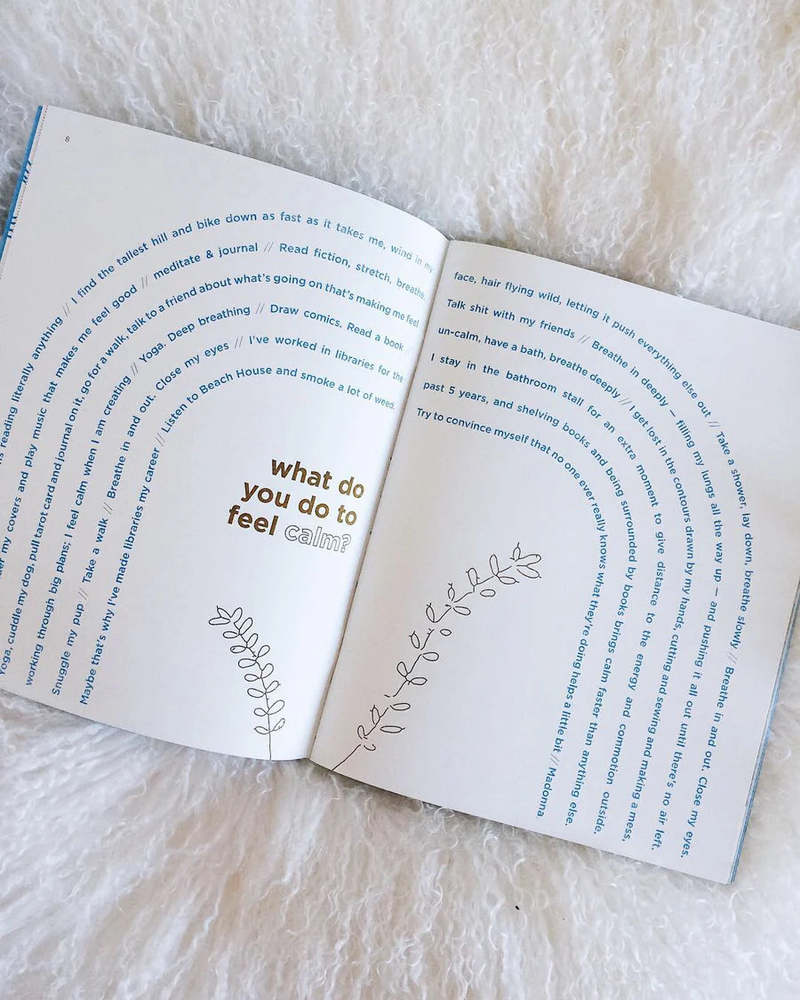 8
reading literally anything // I find the tallest hill and bike down as fast as it takes me, wind in my face, hair flying wild, letting it push everything else out // Take a shower, lay down, breathe slowly // Breathe in and out. Close my eyes.
my covers and play music that makes me feel good // meditate & journal // Read fiction, stretch, breathe. Talk shit with my friends // Breathe in deeply — filling my lungs all the way up — and pushing it all out until there's no air left.
Yoga, cuddle my dog, pull tarot card and journal on it, go for a walk, talk to a friend about what's going on that's making me feel un-calm, have a bath, breathe deeply // I get lost in the contours drawn by my hands, cutting and sewing and making a mess,
working through big plans; I feel calm when I am creating // Yoga. Deep breathing // Draw comics. Read a book I stay in the bathroom stall for an extra moment to give distance to the energy and commotion outside.
Snuggle my pup // Take a walk // Breathe in and out. Close my eyes // I've worked in libraries for the past 5 years, and shelving books and being surrounded by books brings calm faster than anything else.
Maybe that's why I've made libraries my career // Listen to Beach House and smoke a lot of weed. Try to convince myself that no one ever really knows what they're doing helps a little bit // Madonna
what do
you do to
feel calm?